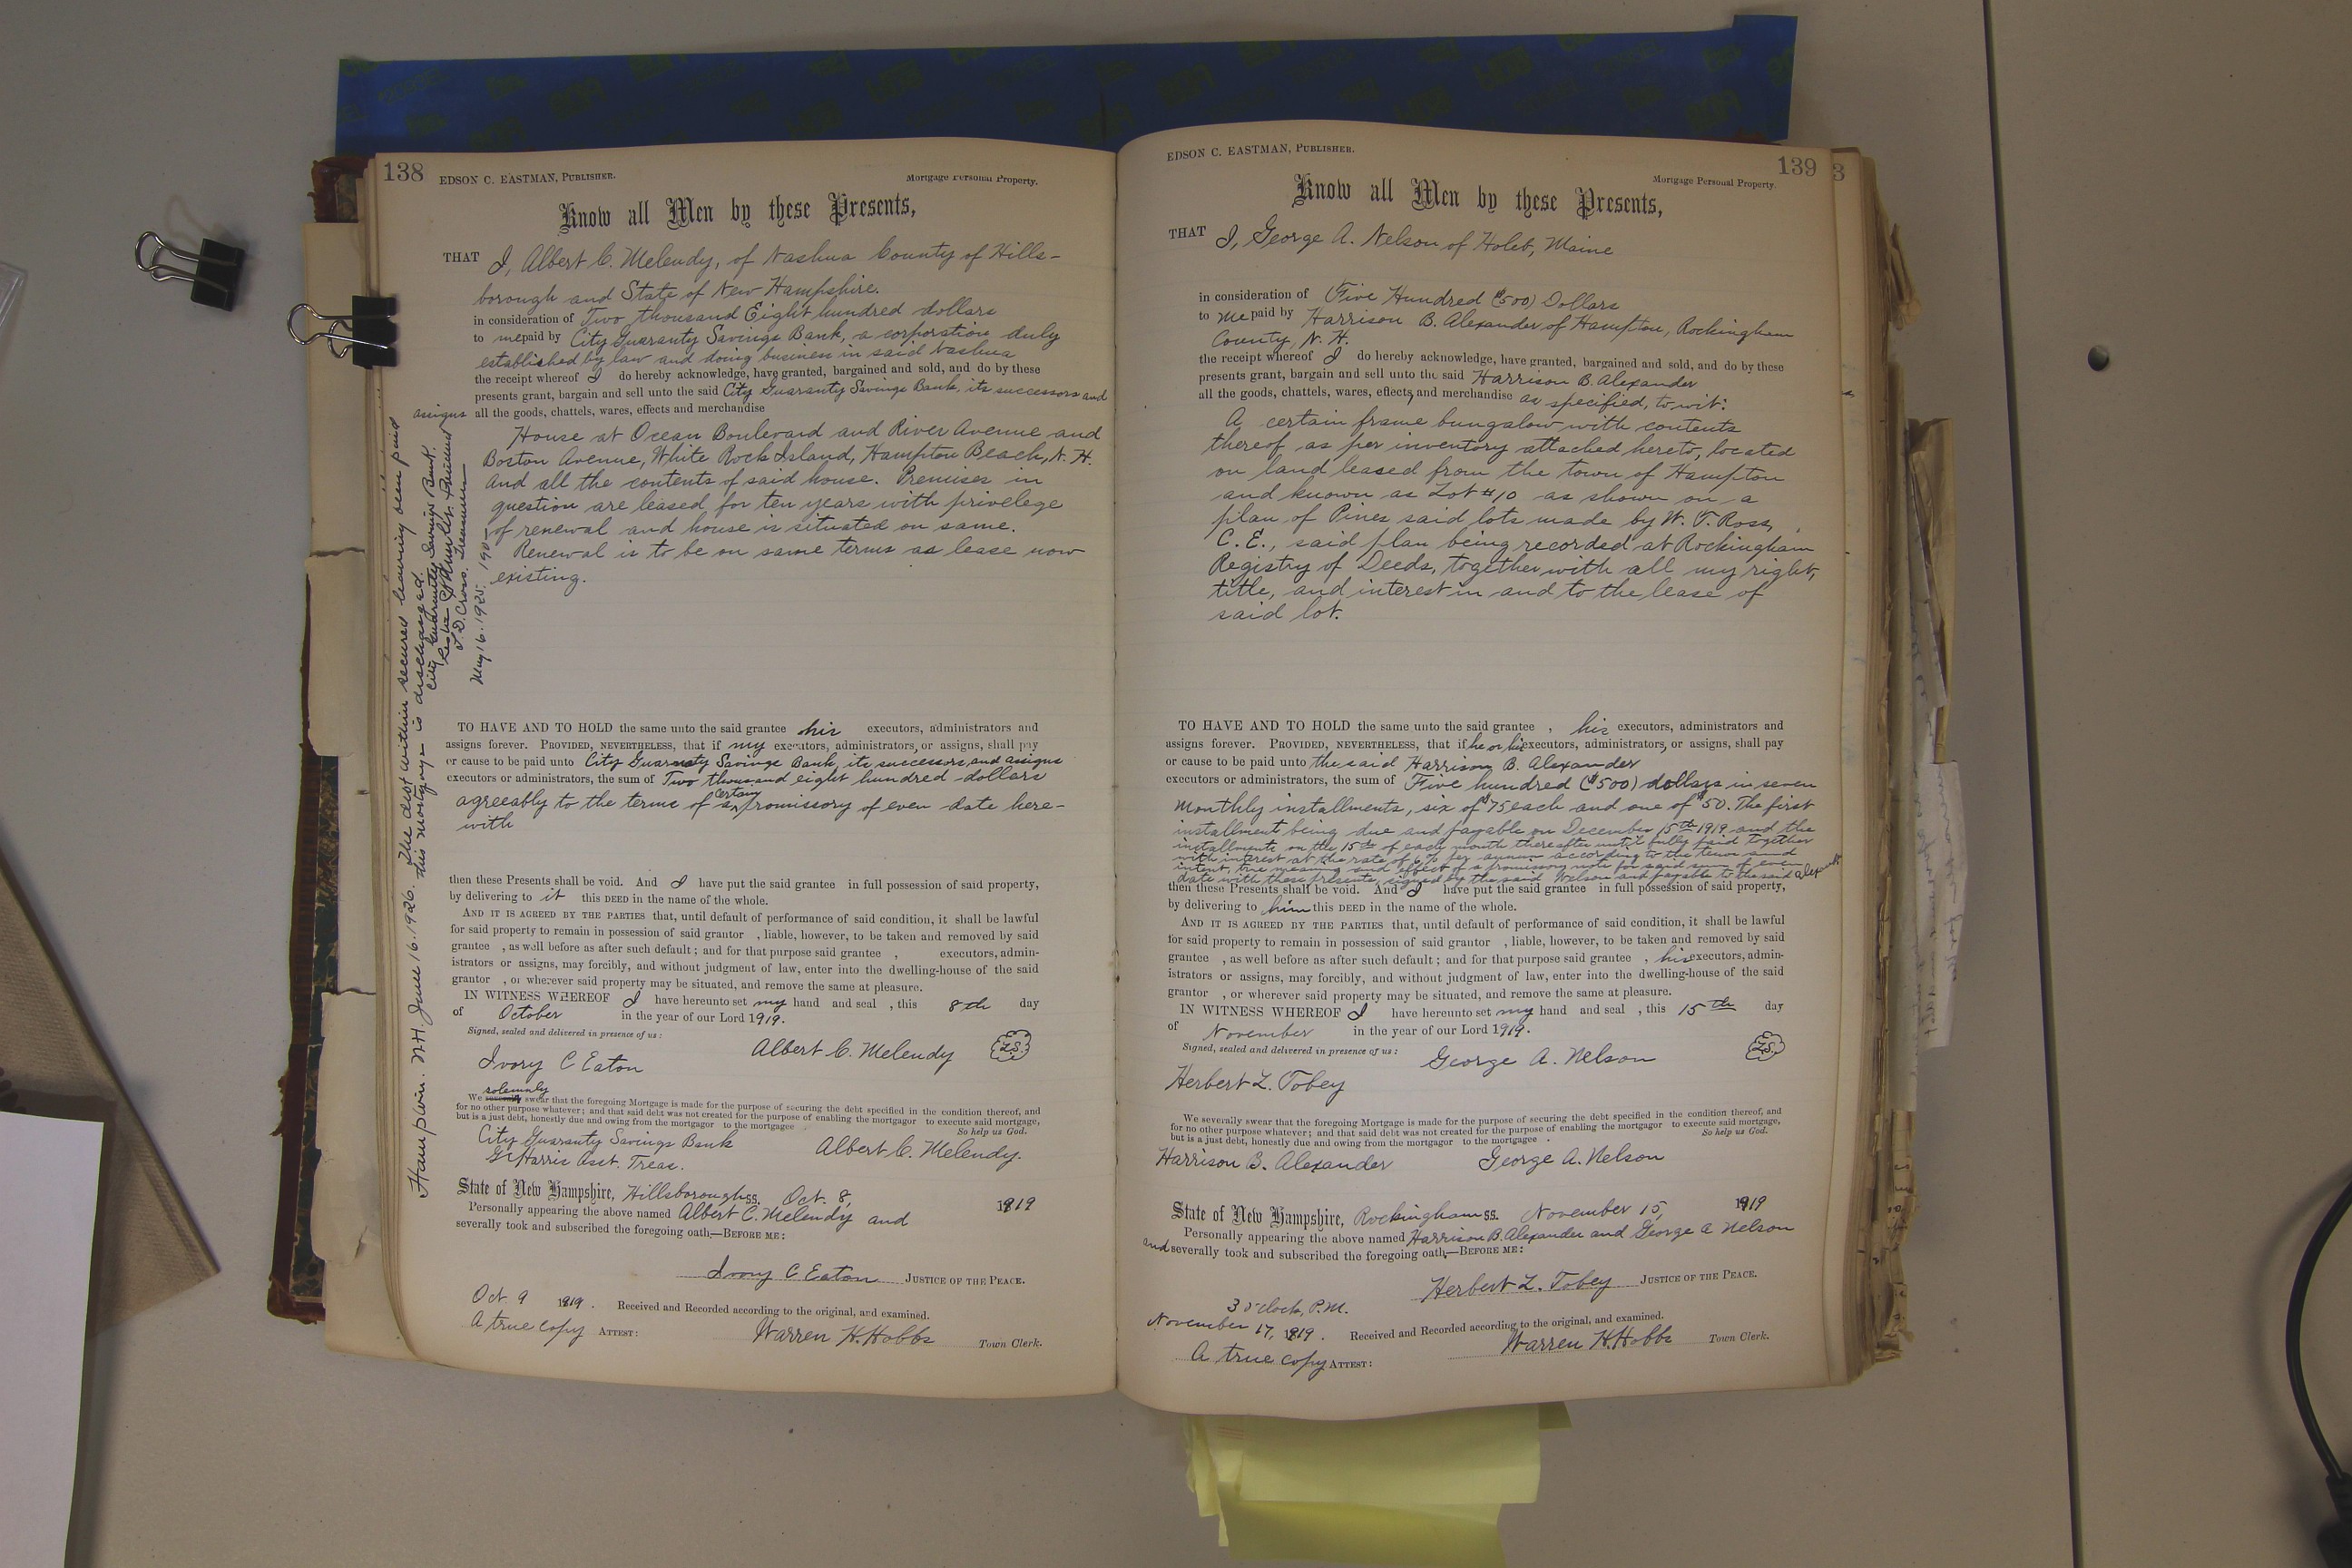 138
EDSON C. EASTMAN, PUBLISHER.
Mortgage Personal Property.
Know all Men by these Presents,
THAT I, Albert C. Melendy, of Nashua County of Hills-
borough and State of New Hampshire.
in consideration of Two thousand Eight hundred dollars
to me paid by City Guaranty Savings Bank, a corporation duly
established by law and doing business in said Nashua
the receipt whereof I do hereby acknowledge, have granted, bargained and sold, and do by these
presents grant, bargain and sell unto the said City Guaranty Savings Bank, its successors and
assigns all the goods, chattels, wares, effects and merchandise
House at Ocean Boulevard and River Avenue and
Boston Avenue, White Rock Island, Hampton Beach, N. H.
and all the contents of said house. Premises in
question are leased for ten years with privelege
of renewal and house is situated on same.
Renewal is to be on same terms as lease now
existing.
TO HAVE AND TO HOLD the same unto the said grantee his executors, administrators and
assigns forever. PROVIDED, NEVERTHELESS, that if my executors, administrators, or assigns, shall pay
or cause to be paid unto City Guaranty Savings Bank, its successors, and assigns
executors or administrators, the sum of Two thousand eight hundred dollars
agreeably to the terms of a certain promissory of even date here-
with
then these Presents shall be void. And I have put the said grantee in full possession of said property,
by delivering to it this DEED in the name of the whole.
AND IT IS AGREED BY THE PARTIES that, until default of performance of said condition, it shall be lawful
for said property to remain in possession of said grantor , liable, however, to be taken and removed by said
grantee , as well before as after such default; and for that purpose said grantee , executors, admin-
istrators or assigns, may forcibly, and without judgment of law, enter into the dwelling-house of the said
grantor , or wherever said property may be situated, and remove the same at pleasure.
IN WITNESS WHEREOF I have hereunto set my hand and seal , this 8th day
of October in the year of our Lord 1919.
Signed, sealed and delivered in presence of us:
Ivory C Eaton Albert C. Melendy L.S.
solemnly
We severally swear that the foregoing Mortgage is made for the purpose of securing the debt specified in the condition thereof, and
for no other purpose whatever; and that said debt was not created for the purpose of enabling the mortgagor to execute said mortgage,
but is a just debt, honestly due and owing from the mortgagor to the mortgagee So help us God.
City Guaranty Savings Bank Albert C. Melendy.
Harris Asst. Treas.
State of New Hampshire, Hillsborough SS. Oct. 8, 1919
Personally appearing the above named Albert C. Melendy and
severally took and subscribed the foregoing oath,—BEFORE ME:
Ivory C Eaton JUSTICE OF THE PEACE.
Oct. 9 1919. Received and Recorded according to the original, and examined.
A true copy ATTEST: Warren H. Hobbs Town Clerk.
Hampton. N.H. June 16. 1926. The debt within secured having been paid
this mortgage is discharged.
City Guaranty Savings Bank.
J. D. Cross. Treasurer
May 16. 1925. 190-
139
EDSON C. EASTMAN, PUBLISHER.
Mortgage Personal Property.
3
Know all Men by these Presents,
THAT I, George A. Nelson of Holeb, Maine
in consideration of Five Hundred ($500) Dollars
to me paid by Harrison B. Alexander of Hampton, Rockingham
County, N. H.
the receipt whereof I do hereby acknowledge, have granted, bargained and sold, and do by these
presents grant, bargain and sell unto the said Harrison B. Alexander
all the goods, chattels, wares, effects, and merchandise as specified, to wit:
A certain frame bungalow with contents
thereof as per inventory attached hereto, located
on land leased from the town of Hampton
and known as Lot #10 as shown on a
plan of Pines said lots made by W. T. Ross,
C. E., said plan being recorded at Rockingham
Registry of Deeds, together with all my right,
title, and interest in and to the lease of
said lot.
TO HAVE AND TO HOLD the same unto the said grantee , his executors, administrators and
assigns forever. PROVIDED, NEVERTHELESS, that if he or his executors, administrators, or assigns, shall pay
or cause to be paid unto the said Harrison B. Alexander
executors or administrators, the sum of Five hundred ($500) dollars in seven
monthly installments, six of $75 each and one of $50. The first
installment being due and payable on December 15th 1919 and the
installments on the 15th of each month thereafter until fully paid together
with interest at the rate of 6% per annum according to the tenor and
intent, true meaning and effect of a promissory note for said sum of even
date with these presents, signed by the said Nelson and payable to the said Alexander
then these Presents shall be void. And I have put the said grantee in full possession of said property,
by delivering to him this DEED in the name of the whole.
AND IT IS AGREED BY THE PARTIES that, until default of performance of said condition, it shall be lawful
for said property to remain in possession of said grantor , liable, however, to be taken and removed by said
grantee , as well before as after such default; and for that purpose said grantee , his executors, admin-
istrators or assigns, may forcibly, and without judgment of law, enter into the dwelling-house of the said
grantor , or wherever said property may be situated, and remove the same at pleasure.
IN WITNESS WHEREOF I have hereunto set my hand and seal , this 15th day
of November in the year of our Lord 1919.
Signed, sealed and delivered in presence of us:
George A. Nelson L.S.
Herbert L. Tobey
We severally swear that the foregoing Mortgage is made for the purpose of securing the debt specified in the condition thereof, and
for no other purpose whatever; and that said debt was not created for the purpose of enabling the mortgagor to execute said mortgage,
but is a just debt, honestly due and owing from the mortgagor to the mortgagee . So help us God.
Harrison B. Alexander George A. Nelson
State of New Hampshire, Rockingham SS. November 15, 1919
Personally appearing the above named Harrison B. Alexander and George A Nelson
and severally took and subscribed the foregoing oath,—BEFORE ME:
Herbert L. Tobey JUSTICE OF THE PEACE.
3 o'clock, P.M.
November 17, 1919. Received and Recorded according to the original, and examined.
A true copy ATTEST: Warren H. Hobbs Town Clerk.